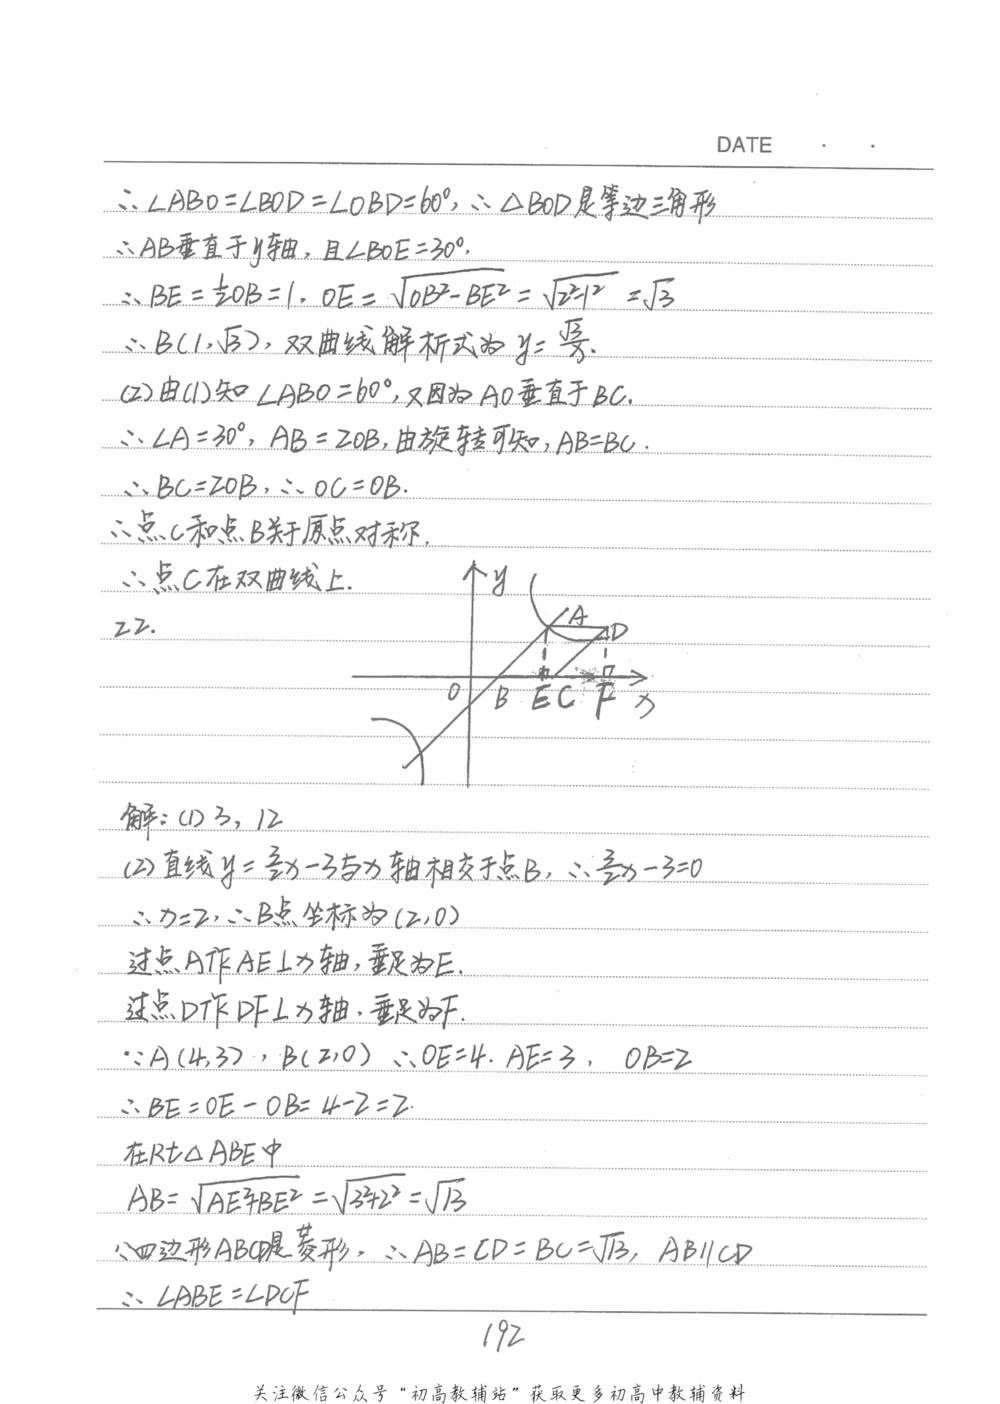 DATE · ·
∴∠ABO=∠BOD=∠OBD=60°,∴△BOD是等边三角形
∴AB垂直于y轴,且∠BOE=30°.
∴BE=½OB=1,OE=√(OB²-BE²)=√(2²-1²)=√3
∴B(1,√3),双曲线解析式为y=√3/x.
(2)由(1)知∠ABO=60°,又因为AO垂直于BC.
∴∠A=30°,AB=2OB,由旋转可知,AB=BC.
∴BC=2OB,∴OC=OB.
∴点C和点B关于原点对称.
∴点C在双曲线上.
22.
y
A
D
O B E C F x
解:(1)3,12
(2)直线y=3/2x-3与x轴相交于点B,∴3/2x-3=0
∴x=2,∴B点坐标为(2,0)
过点A作AE⊥x轴,垂足为E.
过点D作DF⊥x轴,垂足为F.
∵A(4,3),B(2,0)∴OE=4.AE=3, OB=2
∴BE=OE-OB=4-2=2.
在Rt△ABE中
AB=√(AE²+BE²)=√(3²+2²)=√13
∵四边形ABCD是菱形,∴AB=CD=BC=√13, AB∥CD
∴∠ABE=∠DCF
192
关注微信公众号“初高教辅站”获取更多初高中教辅资料